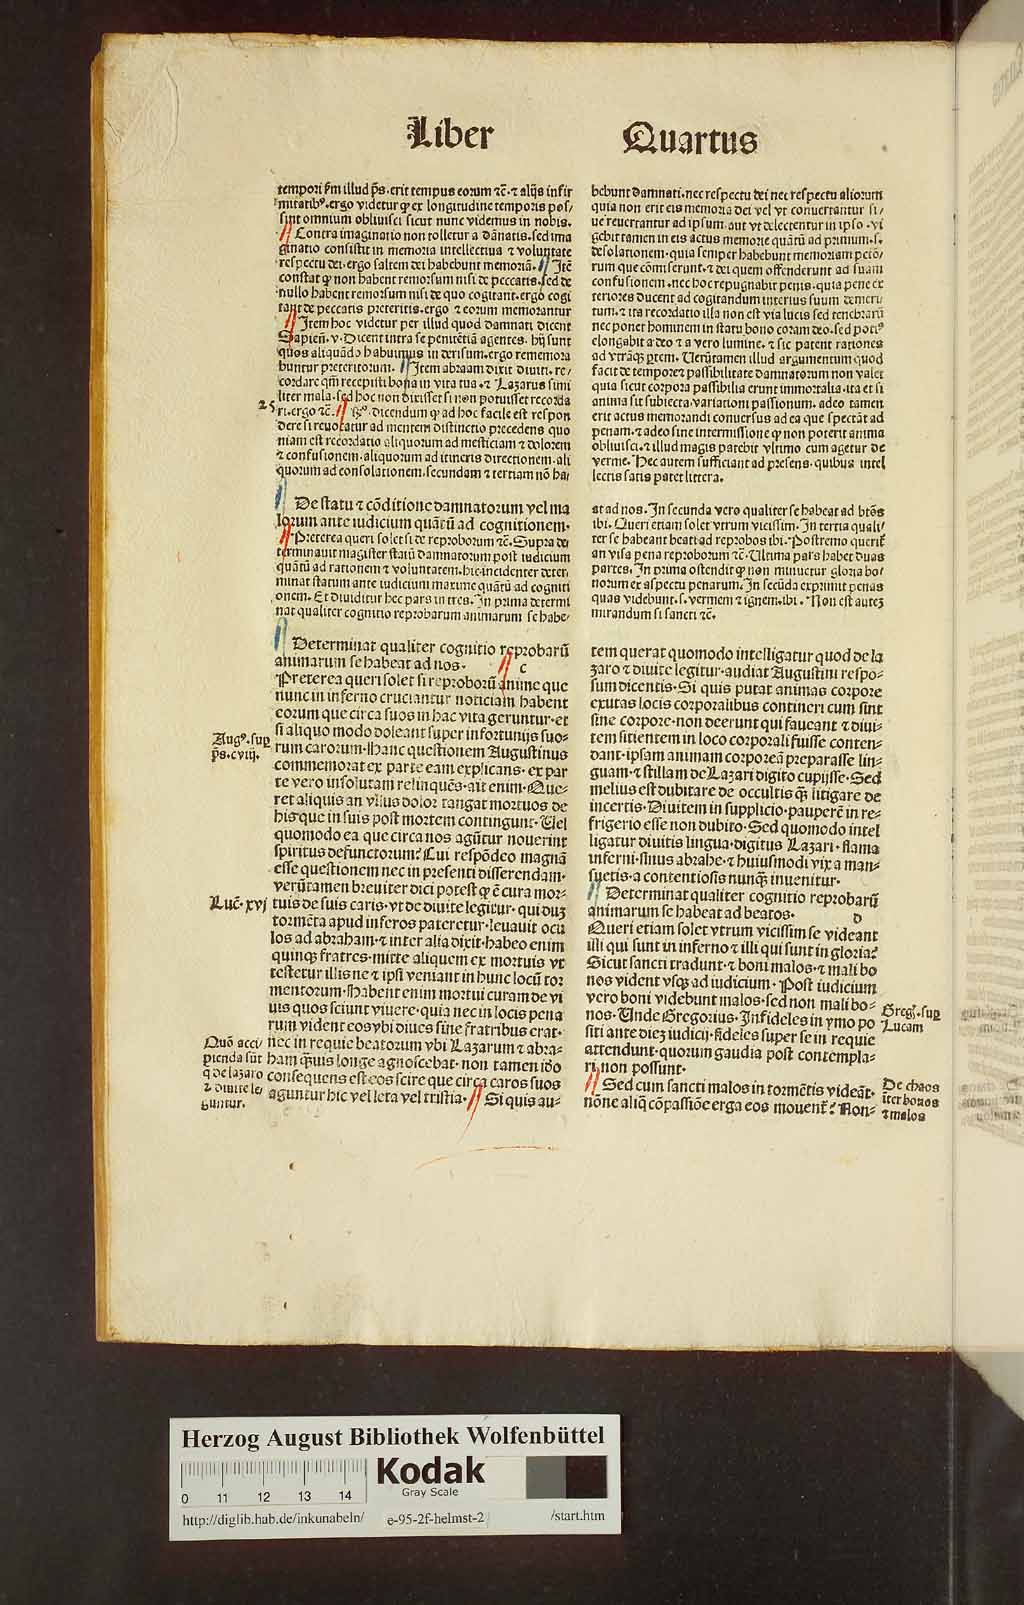 Liber Quartus
tempori s̃m illud p̃s. erit tempus eorum ⁊c̃. ⁊ alijs infir
mitatibꝰ. ergo videtur ꝙ ex longitudine temporis pos/
sint omnium obliuisci sicut nunc videmus in nobis.
¶ Contra imaginatio non tolletur a dãnatis. sed ima
ginatio consistit in memoria intellectiua ⁊ voluntate
respectu dei. ergo saltem dei habebunt memoriã. ¶ Itẽ
constat ꝙ non habent remorsum nisi de peccatis. sed de
nullo habent remorsum nisi de quo cogitant. ergo cogi
tant de peccatis preteritis. ergo ⁊ eorum memorantur
¶ Item hoc videtur per illud quod damnati dicent
Sapien̄. v. Dicent intra se penitẽtiã agentes. hij sunt
quos aliquãdo habuimus in derisum. ergo rememora
buntur preteritorum. ¶ Item abraam dixit diuiti. re/
cordare qm̃ recepisti bona in vita tua. ⁊ Lazarus simi
liter mala. sed hoc non dixisset si non potuisset recorda
25
ri. ergo ⁊c̃. ¶ dicendum ꝙ ad hoc facile est respon
dere si reuocatur ad mentem distinctio precedens quo
niam est recordatio aliquorum ad mesticiam ⁊ dolorem
⁊ confusionem. aliquorum ad itineris directionem. ali
quorum ad consolationem. secundam ⁊ tertiam nõ ha/
bebunt damnati. nec respectu dei nec respectu aliorum
quia non erit eis memoria dei vel vt conuertantur si/
ue reuertantur ad ipsum. aut vt delectentur in ipso. vi
gebit tamen in eis actus memorie quãtũ ad primum. s.
desolationem. quia semper habebunt memoriam pctõ/
rum que cõmiserunt. ⁊ dei quem offenderunt ad suam
confusionem. nec hoc repugnabit penis. quia pene ex
teriores ducent ad cogitandum interius suum demeri/
tum. ⁊ ita recordatio illa non est via lucis sed tenebrarũ
nec ponet hominem in statu bono coram deo. sed potiꝰ
elongabit a deo ⁊ a vero lumine. ⁊ sic patent rationes
ad vtrãqꝫ ptem. Uerũtamen illud argumentum quod
facit de tempore ⁊ passibilitate damnatorum non valet
quia sicut corpora passibilia erunt immortalia. ita et si
anima sit subiecta variationi passionum. adeo tamen
erit actus memorandi conuersus ad ea que spectãt ad
penam. ⁊ adeo sine intermissione ꝙ non poterit anima
obliuisci. ⁊ illud magis patebit vltimo cum agetur de
verme. Hec autem sufficiant ad presens. quibus intel
lectis satis patet littera.
¶ De statu ⁊ cõditione damnatorum vel ma
lorum ante iudicium quãtũ ad cognitionem.
¶ Preterea queri solet si de reproborum ⁊c̃. Supra de
terminauit magister statũ damnatorum post iudicium
quãtũ ad rationem ⁊ voluntatem. hic incidenter deter/
minat statum ante iudicium maxime quãtũ ad cogniti
onem. Et diuiditur hec pars in tres. In prima determi
nat qualiter cognitio reprobarum animarum se habe/
at ad nos. In secunda vero qualiter se habeat ad btõs
ibi. Queri etiam solet vtrum vicissim. In tertia quali/
ter se habeant beati ad reprobos ibi. Postremo querit̃
an visa pena reproborum ⁊c̃. Ultima pars habet duas
partes. In prima ostendit ꝙ non minuetur gloria bo/
norum ex aspectu penarum. In secũda exprimit penas
quas videbunt. s. vermem ⁊ ignem. ibi. Non est autez
mirandum si sancti ⁊c̃.
¶ Determinat qualiter cognitio reprobarũ
animarum se habeat ad nos. ¶ c
Preterea queri solet si reproborũ anime que
nunc in inferno cruciantur noticiam habent
eorum que circa suos in hac vita geruntur. et
si aliquo modo doleant super infortunijs suo=
Augꝰ. sup
p̃s. cviij.
rum carorum. Hanc questionem Augustinus
commemorat ex parte eam explicans. ex par
te vero insolutam relinquẽs. ait enim. Que=
ret aliquis an vllus dolor tangat mortuos de
his que in suis post mortem contingunt. Uel
quomodo ea que circa nos agũtur nouerint
spiritus defunctorum? Cui respõdeo magnã
esse questionem nec in presenti disserendam.
verũtamen breuiter dici potest ꝙ ẽ cura mor=
Luc̃. xvj
tuis de suis caris. vt de diuite legitur. qui duꝫ
tormẽta apud inferos pateretur. leuauit ocu
los ad abraham. ⁊ inter alia dixit. habeo enim
quinqꝫ fratres. mitte aliquem ex mortuis vt
testetur illis ne ⁊ ipsi veniant in hunc locũ tor
mentorum. Habent enim mortui curam de vi
uis quos sciunt viuere. quia nec in locis pena
rum vident eos vbi diues sine fratribus erat.
Quõ acci/
pienda sũt
q̃ de lazaro
⁊ diuite le/
guntur.
nec in requie beatorum vbi Lazarum ⁊ abra=
ham q̃uis longe agnoscebat. non tamen iõo
consequens est eos scire que circa caros suos
aguntur hic vel leta vel tristia. ¶ Si quis au=
tem querat quomodo intelligatur quod de la
zaro ⁊ diuite legitur. audiat Augustini respõ=
sum dicentis. Si quis putat animas corpore
exutas locis corporalibus contineri cum sint
sine corpore. non deerunt qui faueant ⁊ diui=
tem sitientem in loco corporali fuisse conten=
dant. ipsam animam corporeã preparasse lin=
guam. ⁊ stillam de Lazari digito cupijsse. Sed
melius est dubitare de occultis q̃ litigare de
incertis. Diuitem in supplicio. pauperẽ in re=
frigerio esse non dubito. Sed quomodo intel
ligatur diuitis lingua. digitus Lazari. flama
inferni. sinus abrahe. ⁊ huiusmodi vix a man=
suetis. a contentiosis nunq̃ inuenitur.
¶ Determinat qualiter cognitio reprobarũ
animarum se habeat ad beatos. d
Queri etiam solet vtrum vicissim se videant
illi qui sunt in inferno ⁊ illi qui sunt in gloria?
Sicut sancti tradunt. ⁊ boni malos. ⁊ mali bo
nos vident vsqꝫ ad iudicium. Post iudicium
vero boni videbunt malos. sed non mali bo=
Greg̃. sup
Lucam
nos. Unde Gregorius. Infideles in ymo po
siti ante dieꝫ iudicij. fideles super se in requie
attendunt. quorum gaudia post contempla=
ri non possunt.
De chaos
ĩter bonos
⁊ malos
¶ Sed cum sancti malos in tormẽtis videãt.
nõne aliq̃ cõpassiõe erga eos mouent̃? Non=
Herzog August Bibliothek Wolfenbüttel
Kodak
Gray Scale
0 11 12 13 14
http://diglib.hab.de/inkunabeln/ e-95-2f-helmst-2 /start.htm